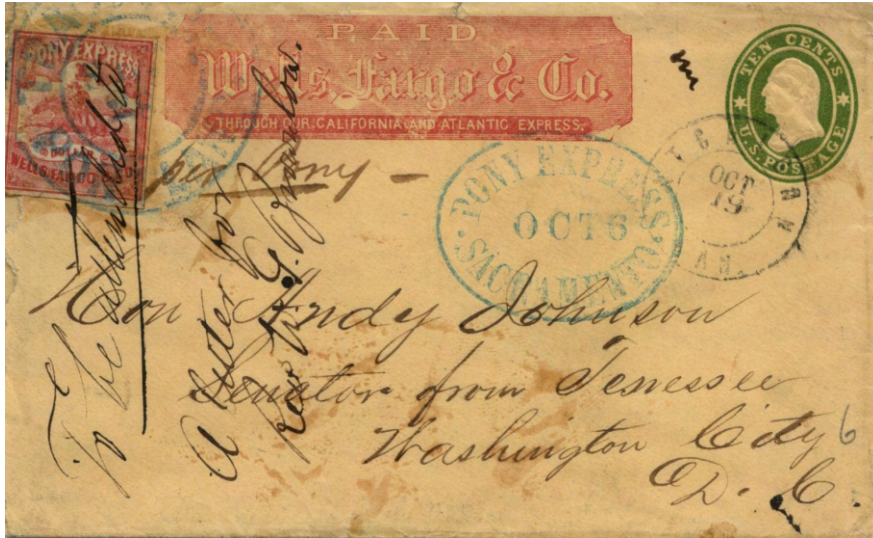 PAID
Wells, Fargo & Co.
THROUGH OUR CALIFORNIA AND ATLANTIC EXPRESS.
PONY EXPRESS
WELLS, FARGO & CO
TEN CENTS
U.S. POSTAGE
per Pony
PONY EXPRESS
OCT 6
SACRAMENTO
OCT
19
Hon Andy Johnson
Senator from Tenessee
Washington City
D. C.
6
To be attended to
A letter for